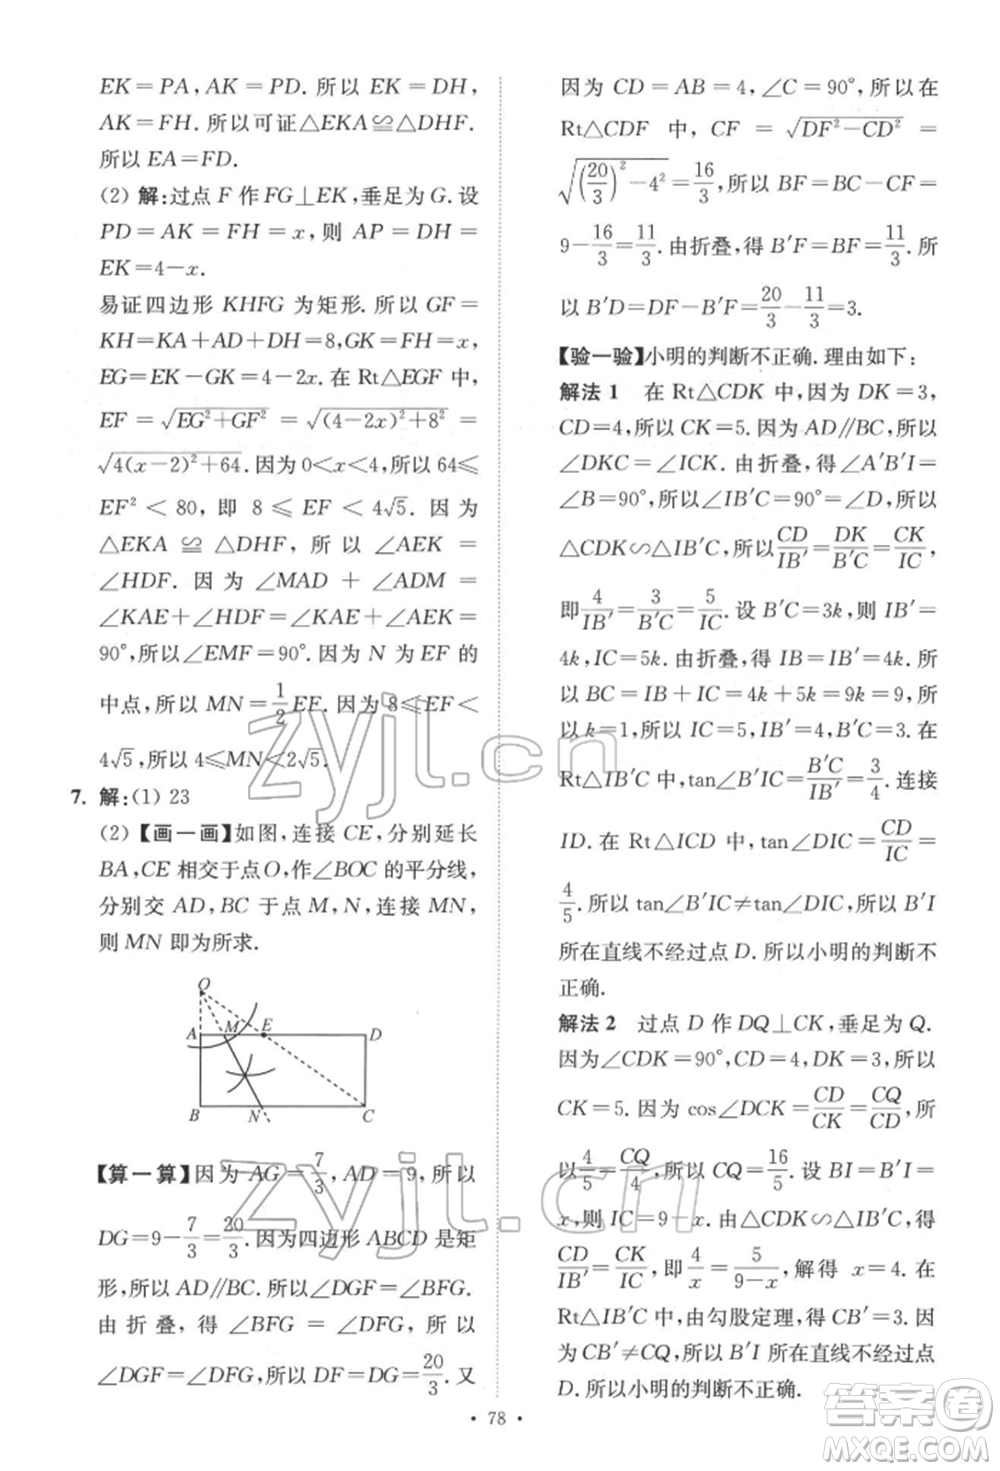 EK=PA, AK=PD. 所以 EK=DH,
AK=FH. 所以可证△EKA≌△DHF.
所以 EA=FD.
(2) 解:过点 F 作 FG⊥EK,垂足为 G. 设
PD=AK=FH=x, 则 AP=DH=
EK=4-x.
易证四边形 KHFG 为矩形. 所以 GF=
KH=KA+AD+DH=8, GK=FH=x,
EG=EK-GK=4-2x. 在 Rt△EGF 中,
EF=√(EG²+GF²)=√((4-2x)²+8²)=
√(4(x-2)²+64). 因为 0<x<4, 所以 64≤
EF²<80, 即 8≤EF<4√5. 因为
△EKA≌△DHF, 所以∠AEK=
∠HDF. 因为∠MAD+∠ADM=
∠KAE+∠HDF=∠KAE+∠AEK=
90°, 所以∠EMF=90°. 因为 N 为 EF 的
中点, 所以 MN=1/2 EF. 因为 8≤EF<
4√5, 所以 4≤MN<2√5.
7. 解:(1) 23
(2)【画一画】如图, 连接 CE, 分别延长
BA, CE 相交于点 O, 作∠BOC 的平分线,
分别交 AD, BC 于点 M, N, 连接 MN,
则 MN 即为所求.
O
A M E D
B N C
【算一算】因为 AG=7/3, AD=9, 所以
DG=9-7/3=20/3. 因为四边形 ABCD 是矩
形, 所以 AD∥BC. 所以∠DGF=∠BFG.
由折叠, 得∠BFG=∠DFG. 所以
∠DGF=∠DFG. 所以 DF=DG=20/3. 又
因为 CD=AB=4, ∠C=90°, 所以在
Rt△CDF 中, CF=√(DF²-CD²)=
√((20/3)²-4²)=16/3, 所以 BF=BC-CF=
9-16/3=11/3. 由折叠, 得 B′F=BF=11/3. 所
以 B′D=DF-B′F=20/3-11/3=3.
【验一验】小明的判断不正确. 理由如下:
解法 1 在 Rt△CDK 中, 因为 DK=3,
CD=4, 所以 CK=5. 因为 AD∥BC, 所以
∠DKC=∠ICK. 由折叠, 得∠A′B′I=
∠B=90°, 所以∠IB′C=90°=∠D, 所以
△CDK∽△IB′C, 所以 CD/IB′=DK/B′C=CK/IC,
即 4/IB′=3/B′C=5/IC. 设 B′C=3k, 则 IB′=
4k, IC=5k. 由折叠, 得 IB=IB′=4k. 所
以 BC=IB+IC=4k+5k=9k=9, 所
以 k=1, 所以 IC=5, IB′=4, B′C=3. 在
Rt△IB′C 中, tan∠B′IC=B′C/IB′=3/4. 连接
ID. 在 Rt△ICD 中, tan∠DIC=CD/IC=
4/5. 所以 tan∠B′IC≠tan∠DIC, 所以 B′I
所在直线不经过点 D. 所以小明的判断不
正确.
解法 2 过点 D 作 DQ⊥CK, 垂足为 Q.
因为∠CDK=90°, CD=4, DK=3, 所以
CK=5. 因为 cos∠DCK=CD/CK=CQ/CD, 所
以 4/5=CQ/4, 所以 CQ=16/5. 设 BI=B′I=
x, 则 IC=9-x. 由△CDK∽△IB′C, 得
CD/IB′=CK/IC, 即 4/x=5/(9-x), 解得 x=4. 在
Rt△IB′C 中, 由勾股定理, 得 CB′=3. 因
为 CB′≠CQ, 所以 B′I 所在直线不经过点
D. 所以小明的判断不正确.
· 78 ·
zyjl.cn
zyjl.cn
答案圈
MXQE.COM